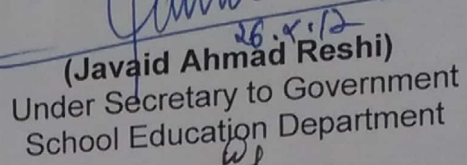 (Javaid Ahmad Reshi)
Under Secretary to Government
School Education Department